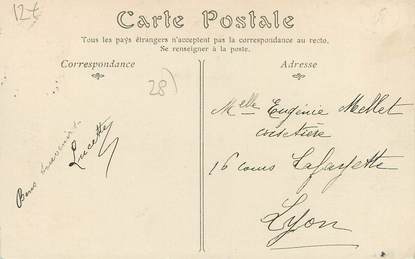 12€
Carte Postale
Tous les pays étrangers n'acceptent pas la correspondance au recto.
Se renseigner à la poste.
Correspondance
Adresse
28)
Bons souvenirs
Lucette
Melle Eugénie Mellet
corsetière
16 cours Lafayette
Lyon